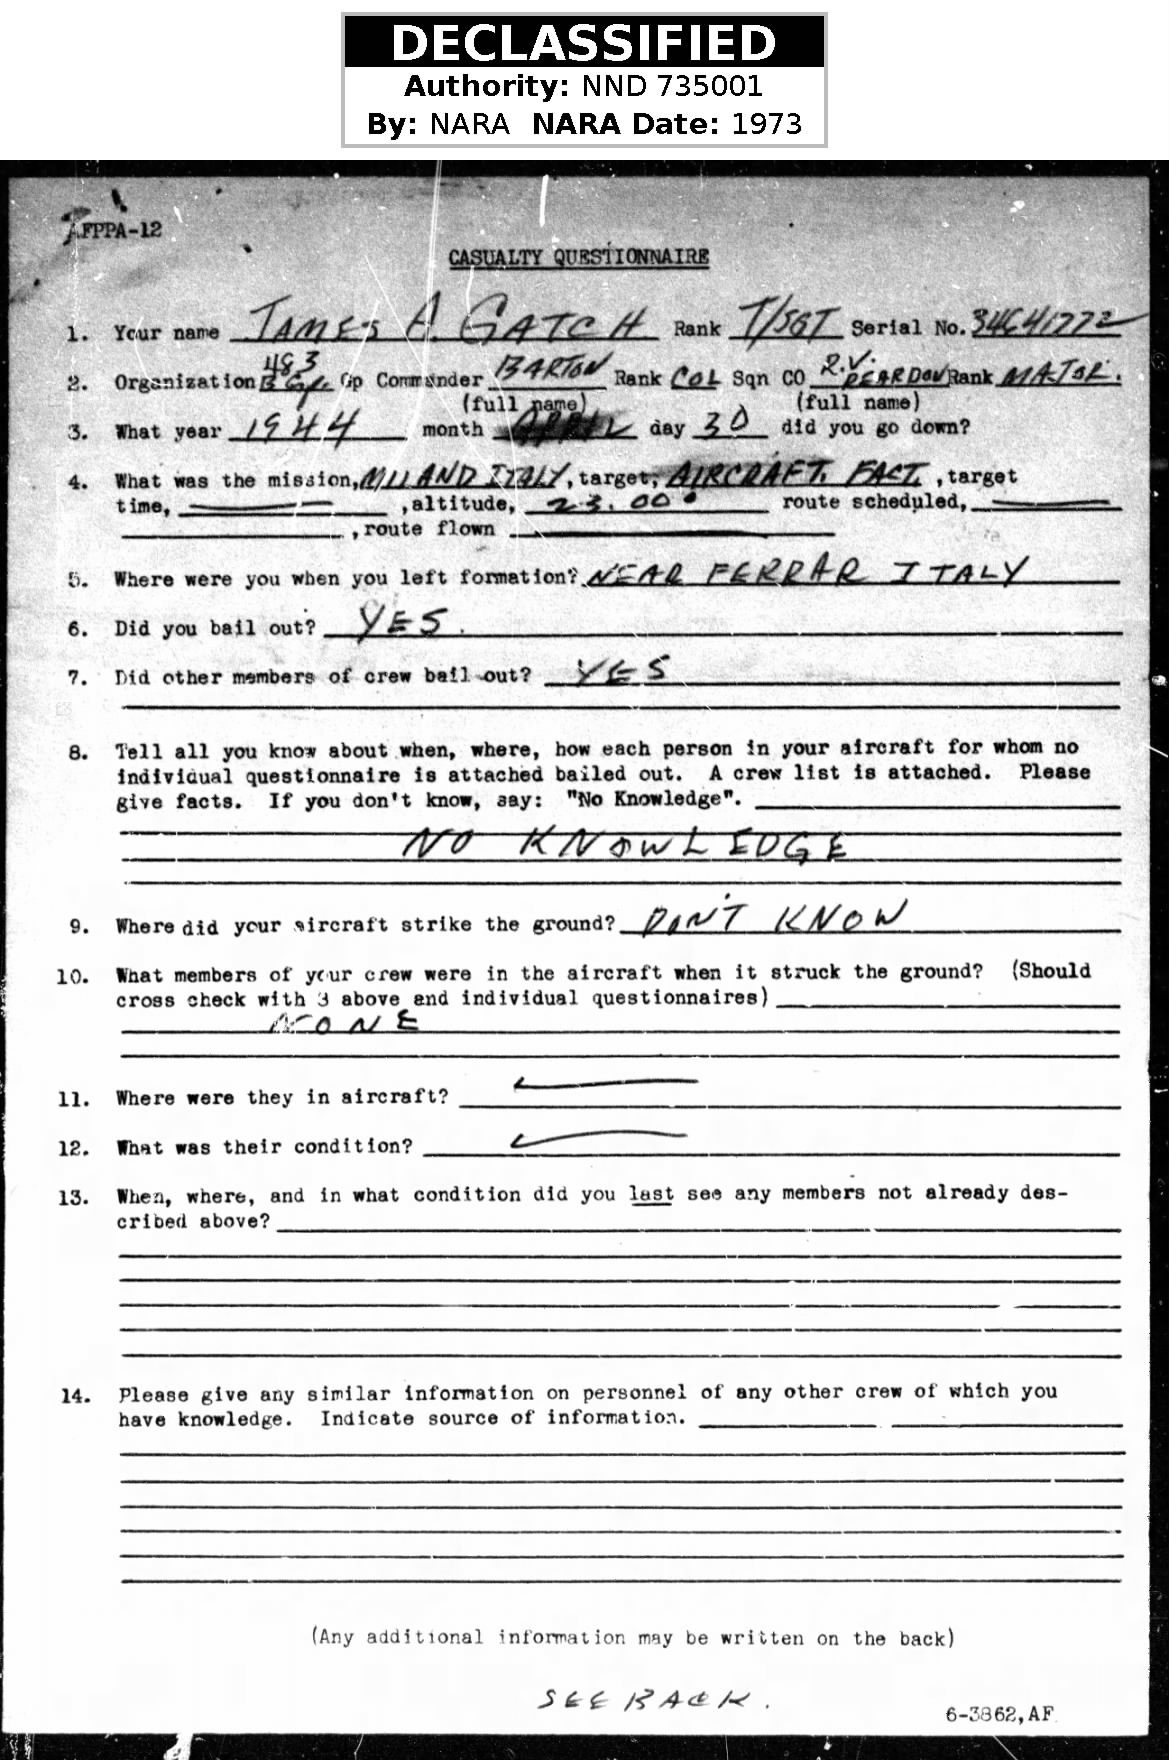 DECLASSIFIED
Authority: NND 735001
By: NARA NARA Date: 1973
AFPPA-12
CASUALTY QUESTIONNAIRE
1. Your name JAMES A. GATCH Rank T/SGT Serial No. 34641772
2. Organization 483 B Gp Commander BARTON Rank COL Sqn CO R.V. REARDON Rank MAJOR.
(full name) (full name)
3. What year 1944 month APRIL day 30 did you go down?
4. What was the mission, MILAND ITALY, target, AIRCRAFT. FACT. , target
time, ,altitude, 23.00 route scheduled,
, route flown
5. Where were you when you left formation? NEAR FERRAR ITALY
6. Did you bail out? YES.
7. Did other members of crew bail out? YES
8. Tell all you know about when, where, how each person in your aircraft for whom no
individual questionnaire is attached bailed out. A crew list is attached. Please
give facts. If you don't know, say: "No Knowledge".
NO KNOWLEDGE
9. Where did your aircraft strike the ground? DON'T KNOW
10. What members of your crew were in the aircraft when it struck the ground? (Should
cross check with 3 above and individual questionnaires)
NONE
11. Where were they in aircraft?
12. What was their condition?
13. When, where, and in what condition did you last see any members not already des-
cribed above?
14. Please give any similar information on personnel of any other crew of which you
have knowledge. Indicate source of information.
(Any additional information may be written on the back)
SEE BACK.
6-3862,AF